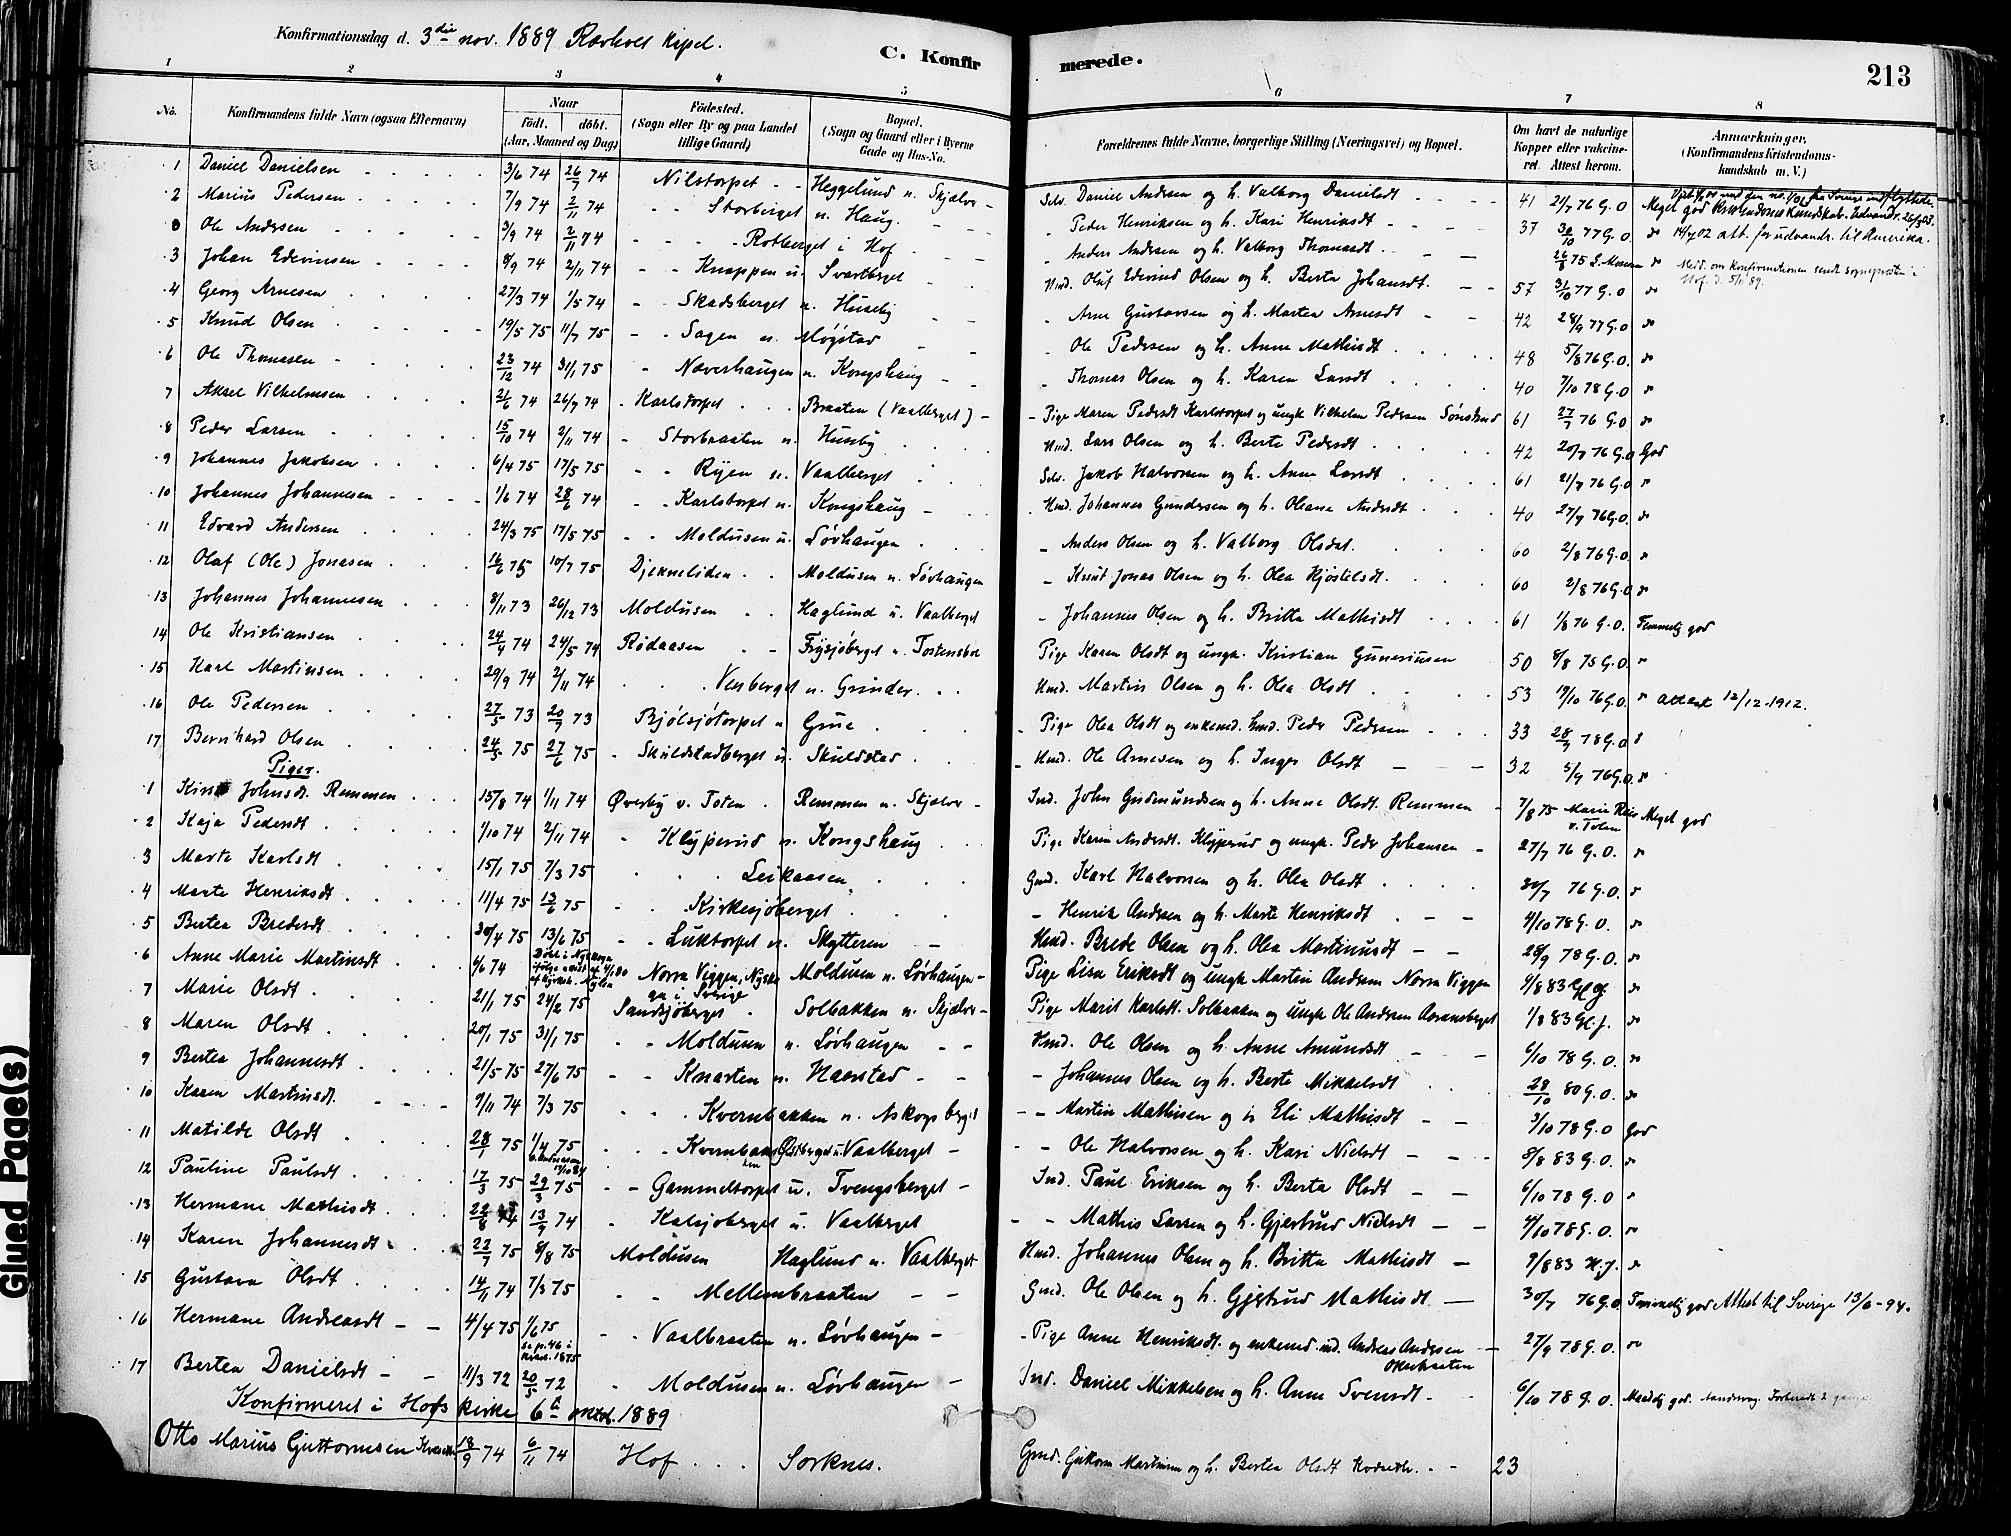 Konfirmationsdag d. 3die nov. 1889 Kapel.
C. Konfirmerede.
213
1 2 3 4 5 6 7 8
No. Konfirmandens fulde Navn (ogsaa Efternavn) Naar födt. döbt. (Aar, Maaned og Dag) Födested. (Sogn eller By og paa Landet tillige Gaard) Bopæl. (Sogn og Gaard eller i Byerne Gade og Hus-No. Forældrenes fulde Navne, borgerlige Stilling (Næringsvei) og Bopæl. Om havt de naturlige Kopper eller vakcineret. Attest herom. Anmærkninger. (Konfirmandens Kristendomskundskab m. V.)
1 Daniel Danielsen 3/6 74 26/7 74 Nilstorpet Heggelund u. Skjølv Selv. Daniel Andsen og h. Valborg Danielsdt 41 21/7 76 G.O. Meget god
2 Marius Pedersen 7/9 74 2/11 74 Storberget u. Haug. Peder Henriksen og h. Kari Henriksdt 37 30/10 77 G.O. do 14/4 02 att. for udvandr. til Amerika.
Ole Andersen 3/9 74 2/11 74 Rotberget i Hof Anders Andsen og h. Valborg Thomasdt. 26/8 75 do Medd. om konfirmationen sendt sognepræsten i Hof d. 5/11 89.
3 Johan Edevinsen 8/9 74 2/11 74 Knappen u. Svartberget Hmd. Oluf Edevind Olsen og h. Berta Johansdt. 57 31/10 77 G.O do
4 Georg Arnesen 27/3 74 1/5 74 Skadsberget u. Huseby Arne Gustavsen og h. Martea Arnesdt 42 28/9 77 G.O do
5 Knud Olsen 19/5 75 11/7 75 Sagen u. Møystad Ole Pedersen og h. Anne Mathisdt 48 5/8 76 G.O. do
6 Ole Thomasen 23/12 74 31/1 75 Næverhaugen u. Kongshaug Thomas Olsen og h. Karen Larsdt 40 7/10 78 G.O
7 Aksel Vilhelmsen 21/6 74 26/7 74 Karlstorpet Braaten (Vaalberget) Pige Maren Pedersdt Karlstorpet og ungk Vilhelm Pedersen 61 27/7 76 G.O do
8 Peder Larsen 15/10 74 2/11 74 Storbraaten u. Huseby Hmd. Lars Olsen og h. Berte Pedersdt 42 20/7 76 G.O God
9 Johannes Jakobsen 6/4 75 17/5 75 Ryen u. Vaalberget Selv. Jakob Halvorsen og h. Anne Larsdt 61 21/7 76 G.O.
10 Johannes Johannesen 1/6 74 28/6 74 Karlstorpet u. Kongshaug Hmd. Johannes Gundersen og h. Oleane Andersdt 40 27/7 76 G.O. do
11 Edvard Andersen 24/3 75 17/5 75 Moldusen u. Løvhaugen Anders Olsen og h. Valborg Olsdat. 60 2/8 76 G.O.
12 Olaf (Ole) Jonasen 16/6 75 10/7 75 Djekneliden Moldusen u. Løvhaugen Knut Jonas Olsen og h. Olea Kjøstelsdt. 60 2/8 76 G.O do
13 Johannes Johannesen 8/11 73 26/12 73 Moldusen Haglund u. Vaalberget Johannes Olsen og h. Britta Mathisdt 61 1/8 76 G.O. Temmelig god
14 Ole Kristiansen 24/4 74 24/5 74 Rødaasen Frysjøberget u. Pige Karen Olsdt og ungk. Kristian Guneriusen 50 8/8 75 G.O.
15 Karl Martinsen 29/9 74 2/11 74 Vesberget u. Grinder. Hmd. Martin Olsen og h. Olea Olsdt 53 19/10 76 G.O. Attest 12/12-1912.
16 Ole Pedersen 27/5 73 20/7 73 Bjølsjøtorpet u Grue Pige Olea Olsdt og enkemd. hmd. Peder Pedersen 33 28/9 78 G.O
17 Bernhard Olsen 24/5 75 27/6 75 Skuldstadberget u. Skuldstad Hmd. Ole Arnesen og h. Inger Olsdt 32 5/9 76 G.O.
Piger.
1 Johnsdt. Remmen 15/8 74 1/11 74 Øverby v. Toten Remmen u. Skjølv Ind. John Gudmundsen og h. Anne Olsdt. Remmen 7/8 75 v. Toten Meget god
2 Kaja Pedersdt 1/10 74 2/11 74 Klyperud u. Kongshaug Pige Karen Andersdt. Klyperud og ungk. Peder Johansen 27/7 76 G.O.
3 Marte Karlsdt 15/1 75 7/3 75 Leikaasen Gmd. Karl Halvorsen og h. Olea Olsdt 30/7 76 G.O.
4 Marte Henriksdt. 11/4 75 13/6 75 Kirkesjøberget Henrik Andersen og h. Marte Henriksdt 4/10 78 G.O.
5 Bertea Bredesdt 30/4 75 13/6 75 Luktorpet u. Skytteren Hmd. Brede Olsen og h. Olea Martinusdt 28/9 78 G.O.
6 Anne Marie Martinsdt 6/6 74 Norra Viggen, Nyskoga i Sverige Moldusen u. Løvhaugen Pige Lisa Eriksdt og ungk Martin Andersen Norra Viggen 4/8 83 do
7 Marie Olsdt 21/1 75 24/2 75 Sandsjøberget Solbakken u. Skjølv Pige Marit Karlsdt. Solbakken og ungk Ole Andersen 1/8 83 do
8 Maren Olsdt 20/1 75 31/1 75 Moldusen u. Løvhaugen Hmd. Ole Olsen og h. Anne Amundsdt 6/10 78 G.O.
9 Bertea Johannesdt 21/5 75 27/6 75 Knarten u. Naverstad Johannes Olsen og h. Berte Mikkelsdt 28/10 80 G.O. do
10 Karen Martinsdt. 9/11 74 7/3 75 Kvernbakken u. Askogsberget Martin Mathisen og h Eli Mathisdt 3/10 78 G.O God
11 Matilde Olsdt 28/1 75 1/4 75 Kvernbakken u. Vaalberget Ole Halvorsen og h. Kari Nielsdt 8/8 83 G.O.
12 Pauline Paulsdt. 17/3 75 29/3 75 Gammeltorpet u. Tvengsberget Ind. Paul Eriksen og h. Berta Olsdt 6/10 78 G.O
13 Hermane Mathisdt 22/8 74 13/9 74 Kalsjøberget u. Vaalberget Mathis Larsen og h. Gjertrud Nielsdt 4/10 78 G.O.
14 Karen Johannesdt 22/7 75 8/8 75 Moldusen Haglund u. Vaalberget Hmd. Johannes Olsen og h. Britta Mathisdt 9/8 83
15 Gustava Olsdt 14/11 74 7/3 75 Mellembraaten Gmd. Ole Olsen og h. Gjertrud Mathisdt. 30/7 76 G.O. Temmelig god Attest til Sverige 13/6-94.
16 Hermane Andreasdt 4/4 75 1/6 75 Se p. 46 i 1875 Vaalbraaten u. Løvhaugen Pige Anne Henriksdt. og enkemd ind. Andreas Andersen 27/9 78 G.O.
17 Bertea Danielsdt 11/3 72 20/5 72 Moldusen u. Løvhaugen Ind. Daniel Mikkelsen og h. Anne Svensdt 6/10 78 G.O. god.
Konfirmeret i Hofs kirke 6te oktbr. 1889
Otto Marius Guttormsen 18/9 74 6/11 74 Hof Sorknes. Gmd. Guttorm Martinsen og h. Bertea Olsdt 23
Glued Page(s)